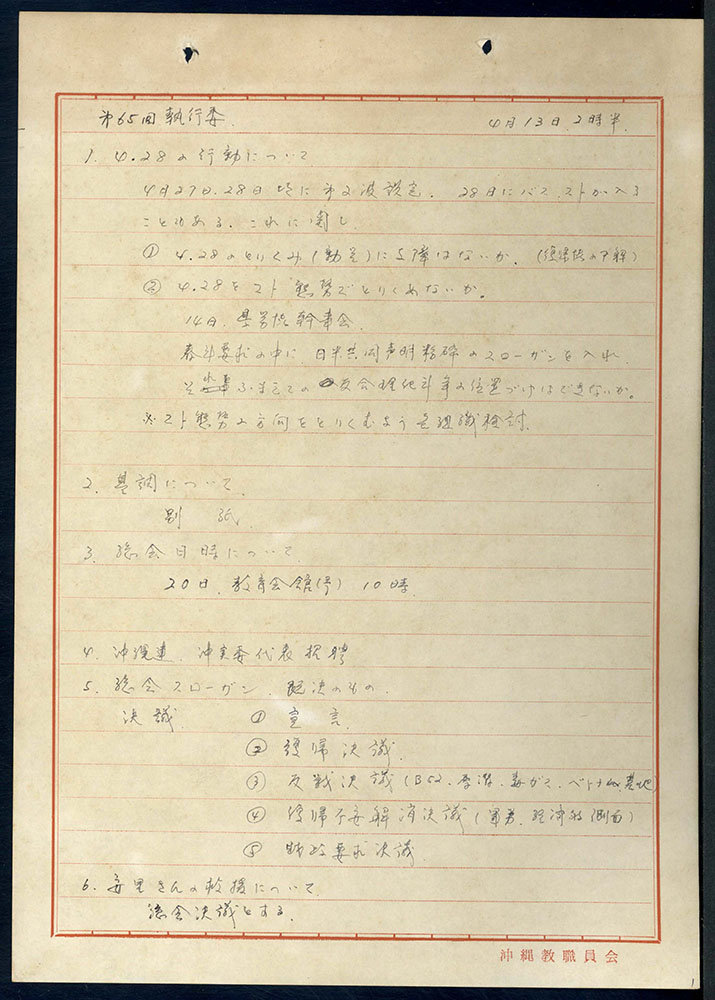 第65回執行委 4月13日.2時半.
1. 4.28の行動について
4月27日.28日 頃に第2波設定. 28日にバスストが入る
ことがある. これに関し
① 4.28のとりくみ(動員)に支障はないか. (復帰協の了解)
② 4.28をスト態勢でとりくめないか。
14日. 県労協幹事会.
春斗要求の中に 日米共同声明粉砕のスローガンを入れ.
ふまえての 反合理化斗争の位置づけはできないか。
※スト態勢の方向をとりくむよう 組織検討.
2. 基調について
別 紙.
3. 総会日時について
20日. 教育会館(ホ) 10時.
4. 沖縄連. 沖実委代表招聘
5. 総会スローガン. 既決のもの.
決議. ① 宣言.
② 復帰決議.
③ 反戦決議(B52. 原潜. 毒ガス. ベトナム. 基地)
④ 復帰不安解消決議(軍労. 経済的側面)
⑤ 財政要求決議
6. 安里さんの救援について.
総会決議とする.
沖縄教職員会
1